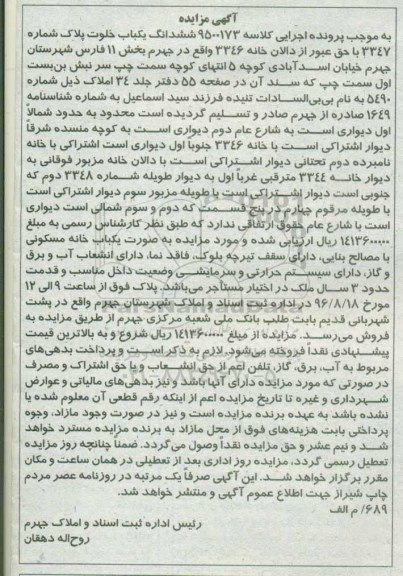 آگهی مزایده
به موجب پرونده اجرایی کلاسه ۹۵۰۰۱۷۳ ششدانگ یکباب خلوت پلاک شماره
۳۳۴۷ با حق عبور از دالان خانه ۳۳۴۶ واقع در جهرم بخش ۱۱ فارس شهرستان
جهرم خیابان اسدآبادی کوچه ۵ انتهای کوچه سمت چپ سر نبش بن‌بست
اول سمت چپ که سند آن در صفحه ۵۵ دفتر جلد ۳۴ املاک ذیل شماره
۵۴۹۰ به نام بی‌بی‌السادات تنیده فرزند سید اسماعیل به شماره شناسنامه
۱۶۴۹ صادره از جهرم صادر و تسلیم گردیده است محدود به حدود شمالاً
اول دیواری است به شارع عام دوم دیواری است به کوچه منسده شرقاً
دیوار اشتراکی است با خانه ۳۳۴۶ جنوبا اول دیواری است اشتراکی با خانه
نامبرده دوم تحتانی دیوار اشتراکی است با دالان خانه مزبور فوقانی به
دیوار خانه ۳۳۴۴ مترقبی غرباً اول به دیوار طویله شماره ۳۳۴۸ دوم که
جنوبی است دیوار اشتراکی است با طویله مزبور سوم دیوار اشتراکی است
با طویله مرقوم چهارم در پنج قسمت که دوم و سوم شمالی است دیواری
است با شارع عام حقوق ارتفاقی ندارد که طبق نظر کارشناس رسمی به مبلغ
۱۴۱۳۶۰۰۰۰۰ ریال ارزیابی شده و مورد مزایده به صورت یکباب خانه مسکونی
با مصالح بنایی، دارای سقف تیرچه بلوک، فاقد نما، دارای انشعاب آب و برق
و گاز، دارای سیستم حرارتی و سرمایشی وضعیت داخل مناسب و قدمت
حدود ۳ سال ملک در اختیار مستأجر می‌باشد. پلاک فوق از ساعت ۹ الی ۱۲
مورخ ۹۶/۸/۱۸ در اداره ثبت اسناد و املاک شهرستان جهرم واقع در پشت
شهربانی قدیم بابت طلب بانک ملی شعبه مرکزی جهرم از طریق مزایده به
فروش می‌رسد. مزایده از مبلغ ۱۴۱۳۶۰۰۰۰۰ ریال شروع و به بالاترین قیمت
پیشنهادی نقداً فروخته می‌شود. لازم به ذکر است و پرداخت بدهی‌های
مربوط به آب، برق، گاز، تلفن اعم از حق انشعاب و یا حق اشتراک و مصرف
در صورتی که مورد مزایده دارای آنها باشد و نیز بدهی‌های مالیاتی و عوارض
شهرداری و غیره تا تاریخ مزایده اعم از اینکه رقم قطعی آن معلوم شده یا
نشده باشد به عهده برنده مزایده است و نیز در صورت وجود مازاد، وجوه
پرداختی بابت هزینه‌های فوق از محل مازاد به برنده مزایده مسترد خواهد
شد و نیم عشر و حق مزایده نقداً وصول می‌گردد. ضمناً چنانچه روز مزایده
تعطیل رسمی گردد، مزایده روز اداری بعد از تعطیلی در همان ساعت و مکان
مقرر برگزار خواهد شد. این آگهی صرفاً یک مرتبه در روزنامه عصر مردم
چاپ شیراز جهت اطلاع عموم آگهی و منتشر خواهد شد.
۶۸۹/م الف
رئیس اداره ثبت اسناد و املاک جهرم
روح‌اله دهقان